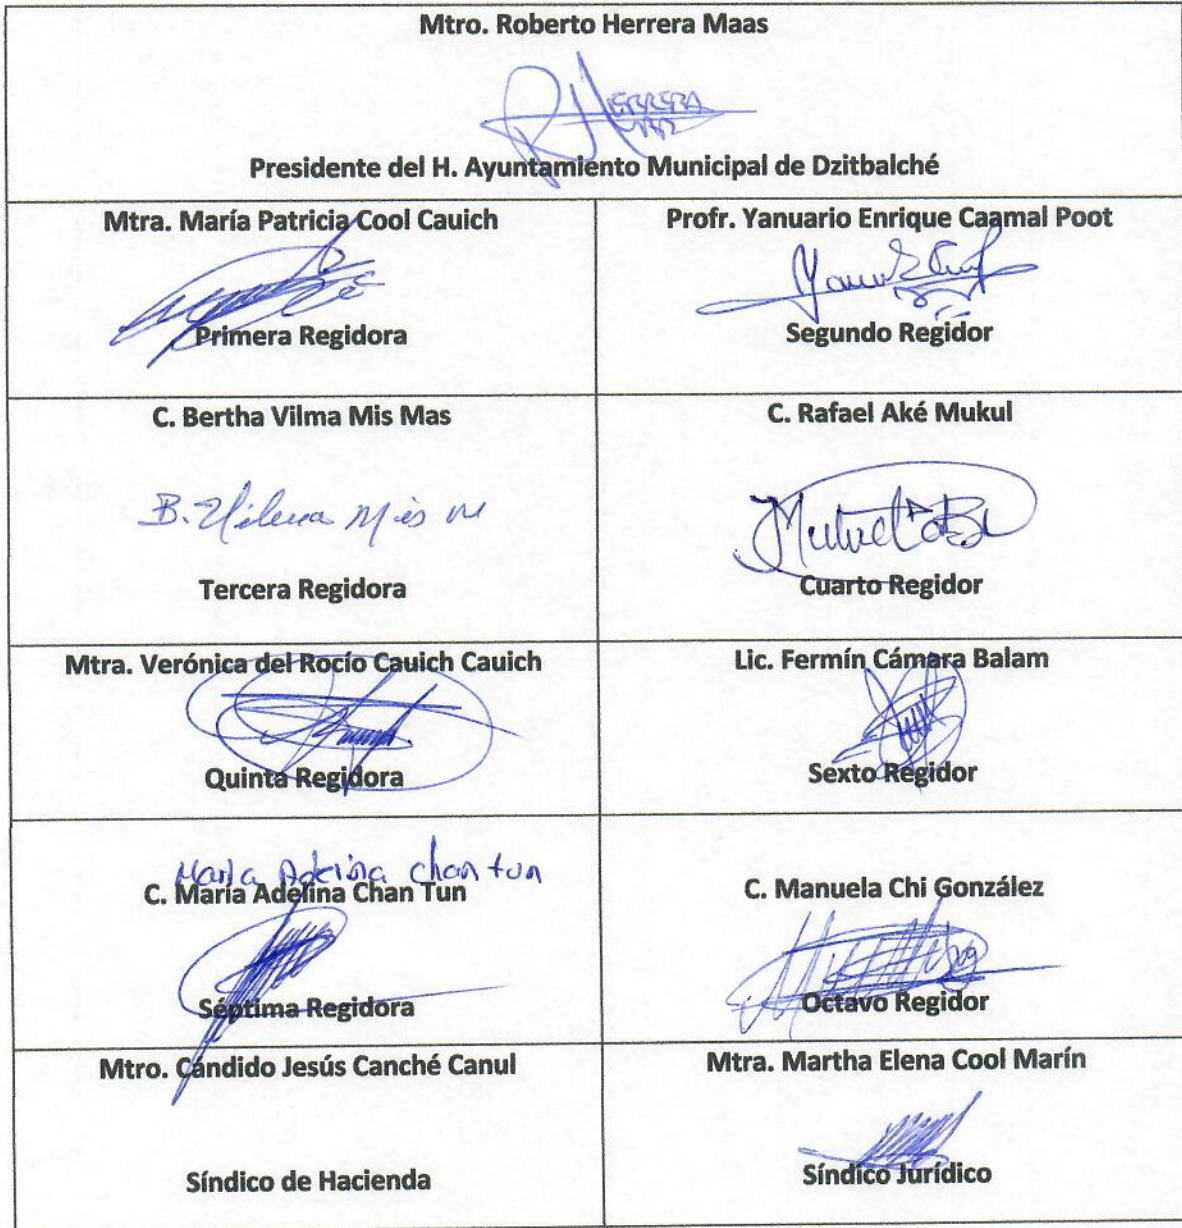 Mtro. Roberto Herrera Maas
R HERRERA
Presidente del H. Ayuntamiento Municipal de Dzitbalché
Mtra. María Patricia Cool Cauich
Primera Regidora
Profr. Yanuario Enrique Caamal Poot
Segundo Regidor
C. Bertha Vilma Mis Mas
B. Vilma Mis M
Tercera Regidora
C. Rafael Aké Mukul
Cuarto Regidor
Mtra. Verónica del Rocío Cauich Cauich
Quinta Regidora
Lic. Fermín Cámara Balam
Sexto Regidor
Maria Adelina chan tun
C. María Adelina Chan Tun
Séptima Regidora
C. Manuela Chi González
Octavo Regidor
Mtro. Cándido Jesús Canché Canul
Síndico de Hacienda
Mtra. Martha Elena Cool Marín
Síndico Jurídico